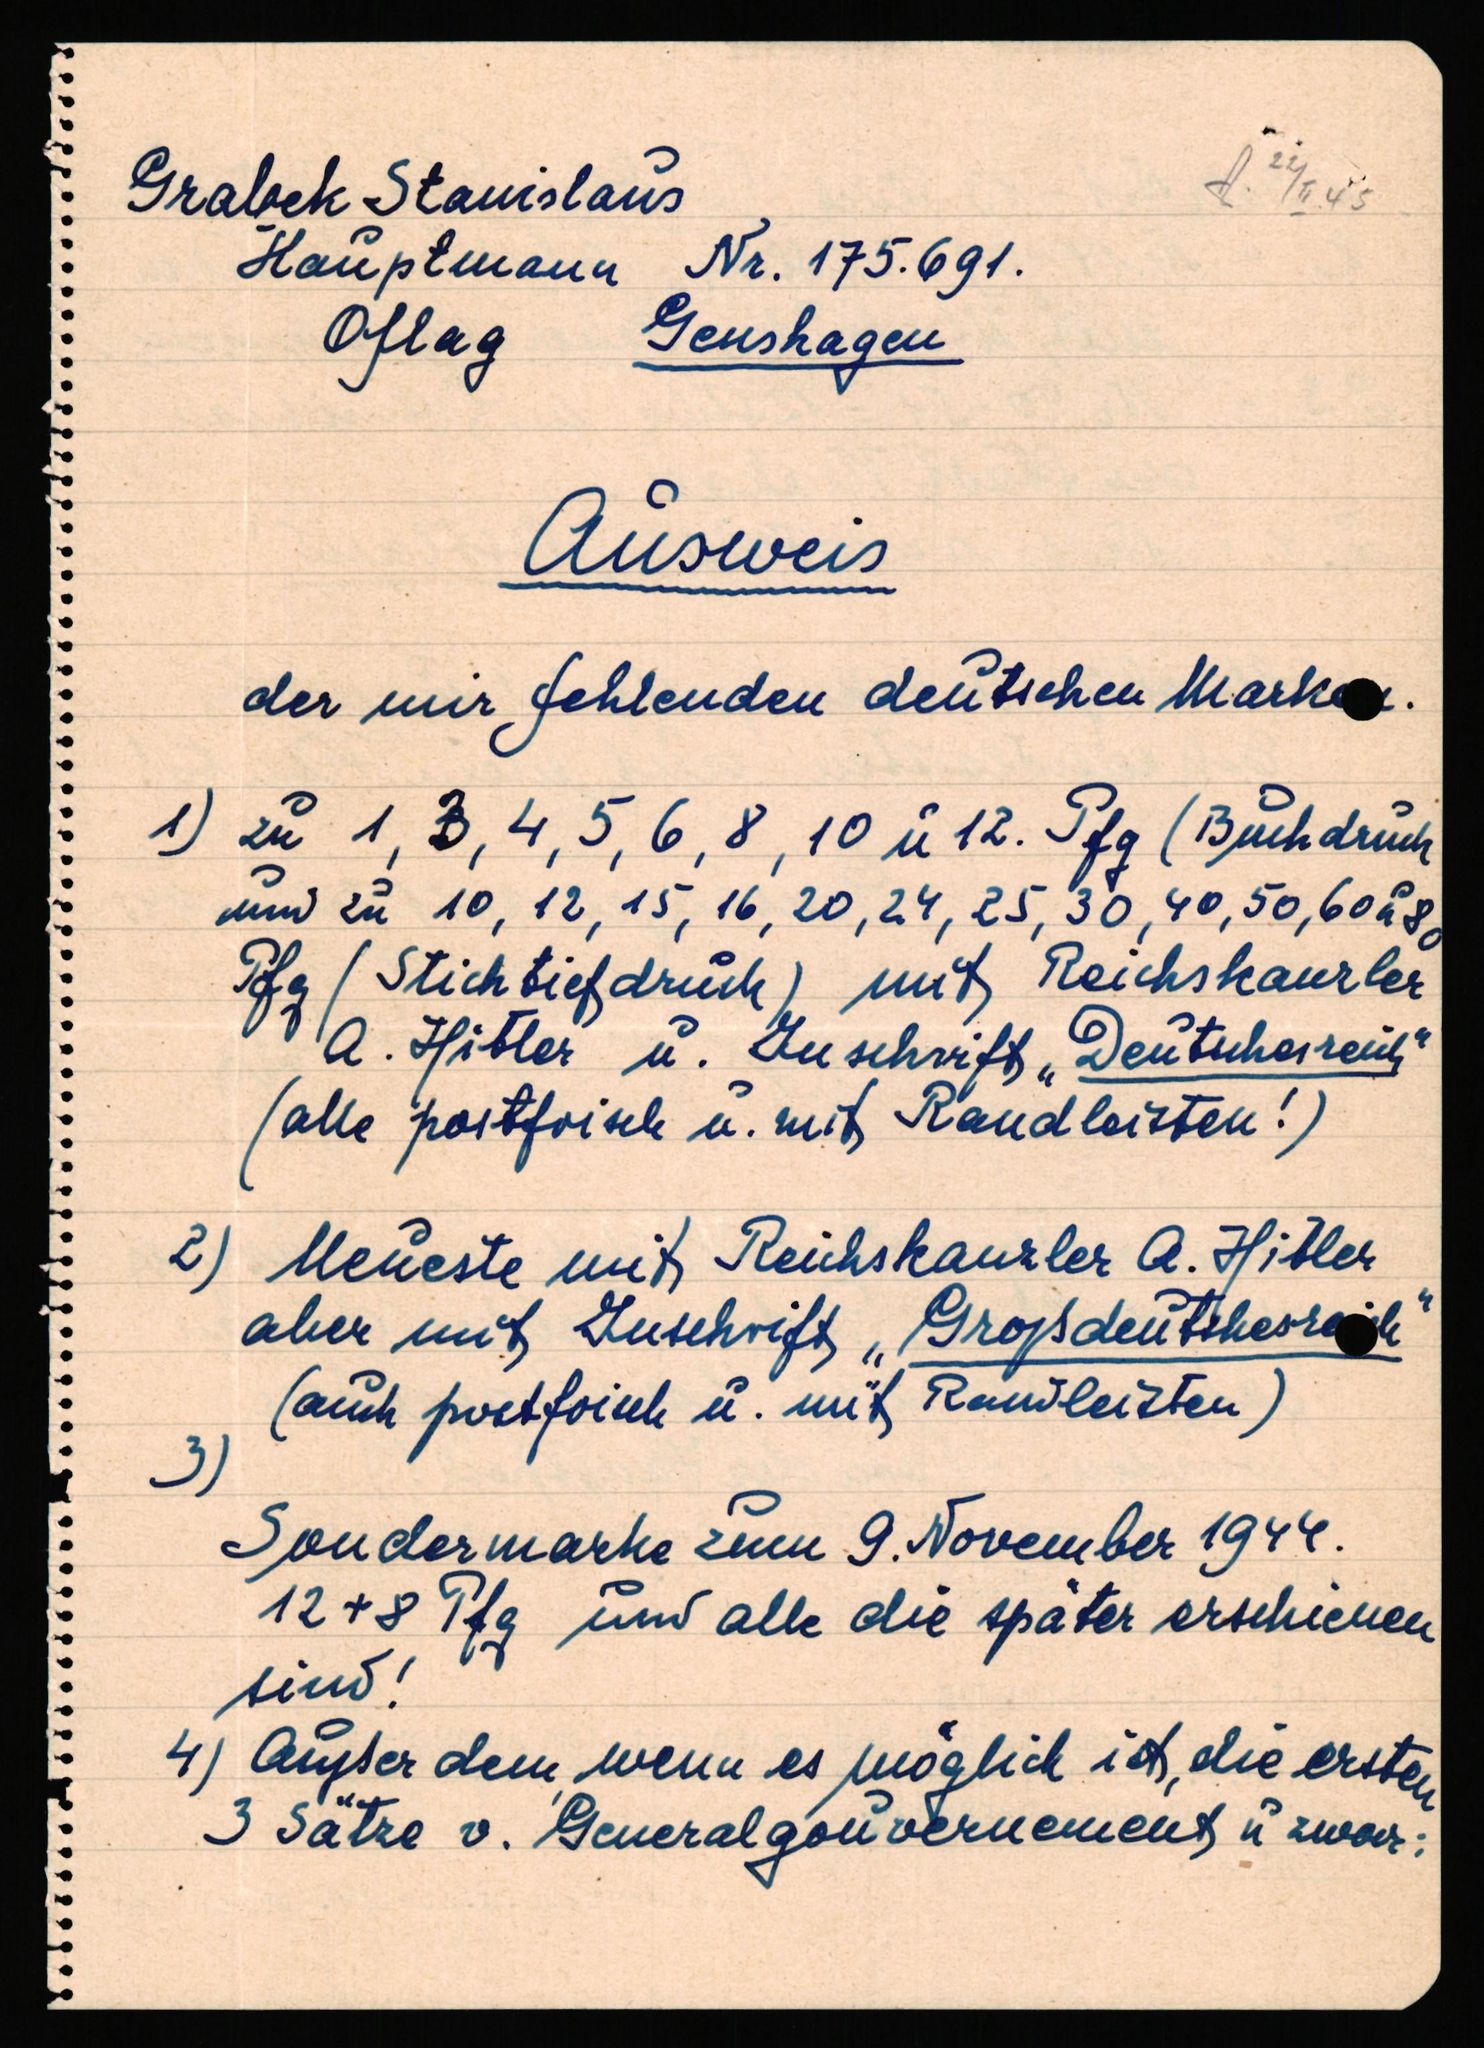 22/II.45
Grabek Stanislaus
Hauptmann Nr. 175.691.
Oflag Genshagen
Ausweis
der mir fehlenden deutschen Marken.
1) zu 1, 3, 4, 5, 6, 8, 10 u 12. Pfg (Buchdruck
und zu 10, 12, 15, 16, 20, 24, 25, 30, 40, 50, 60 u 80
Pfg (Stichtiefdruck) mit Reichskanzler
A. Hitler u. Inschrift „Deutschesreich“
(alle postfrisch u. mit Randleisten!)
2) Neueste mit Reichskanzler A. Hitler
aber mit Inschrift „Großdeutschesreich“
(auch postfrisch u. mit Randleisten)
3)
Sondermarke zum 9. November 1944.
12+8 Pfg und alle die später erschienen
sind!
4) Außer dem, wenn es möglich ist, die ersten
3 Sätze v. Generalgouvernement u zwar: